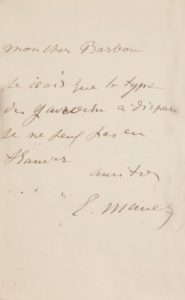 mon cher Barbou
je crois que le type
du gavroche a disparu
je ne peux pas en
trouver
amitiés
E. Manet